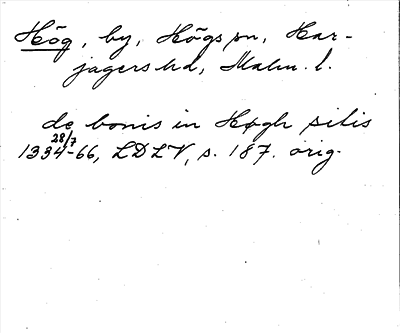 Hög, by, Högs sn, Har-
jagers hd, Malm. l.
de bonis in Høgh sitis
28/7
1334-66, LDLV, s. 187. orig.